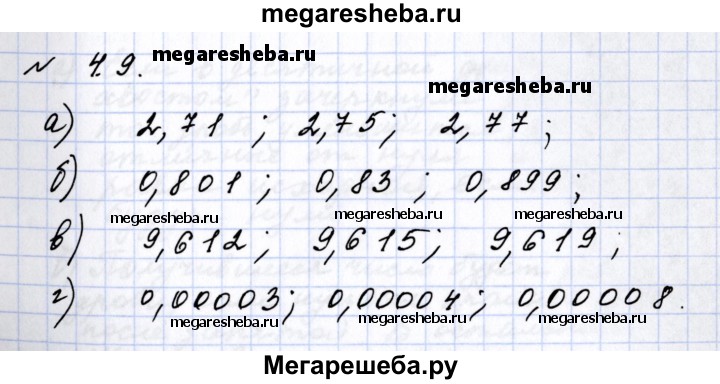 megaresheba.ru
№ 4.9. megaresheba.ru
megaresheba.ru
а) 2,71 ; 2,75; 2,77;
б) 0,801 ; 0,83 ; 0,899;
megaresheba.ru megaresheba.ru megaresheba.ru
в) 9,612; 9,615; 9,619 ;
г) 0,00003; 0,00004; 0,00008.
megaresheba.ru megaresheba.ru megaresheba.ru
Мегарешеба.ру